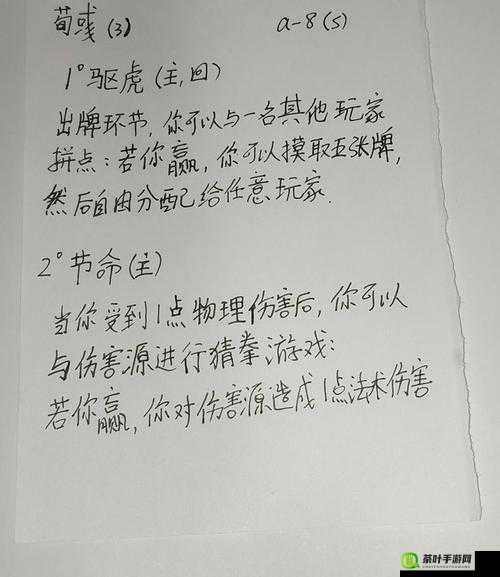 荀彧(3) a-8(5)
1°驱虎(主,回)
出牌环节,你可以与一名其他玩家
拼点:若你赢,你可以摸取五张牌,
然后自由分配给任意玩家.
2°节命(主)
当你受到1点物理伤害后,你可以
与伤害源进行猜拳游戏:
若你赢,你对伤害源造成1点法术伤害
茶叶手游网